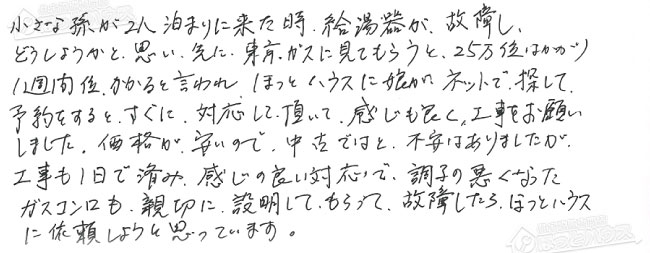 小さな孫が2人泊まりに来た時、給湯器が、故障し、
どうしようかと、思い、先に、東京ガスに見てもらうと、25万位はかかり
1週間位、かかると言われ、ほっとハウスに娘がネットで、探して、
予約をすると、すぐに、対応して頂いて、感じも良く、工事をお願い
しました。価格が、安いので、中古ではと、不安はありましたが、
工事も1日で済み、感じの良い対応で、調子の悪くなった
ガスコンロも、親切に、説明して、もらって、故障したら、ほっとハウス
に依頼しようと思っています。